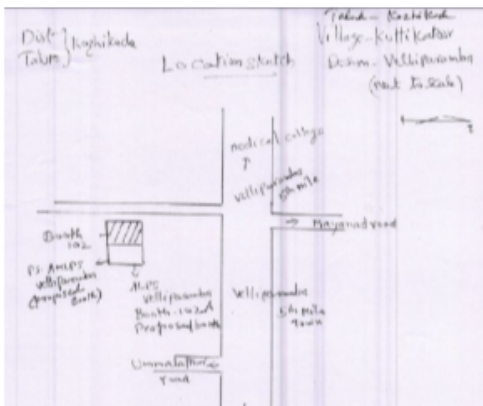 Dist
Taluk } Kozhikode
Location sketch
Taluk - Kozhikode
Village - Kuttikattor
Desom - Velliparamba
(not to scale)
medical college
Velliparamba
5th mile
Mayanad road
Booth
102
PS. AMLPS
Velliparamba
(proposed
Booth)
ALPS
Velliparamba
Booth - 102A
Proposed booth
Velliparamba
5th mile
Town
road